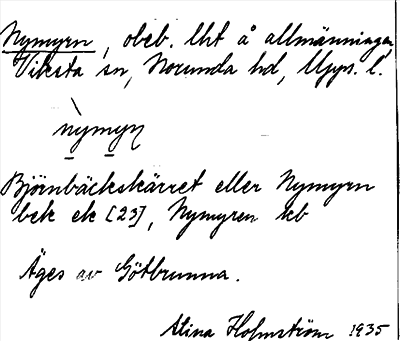 Nymyrn, obeb. lht å allmänningen,
Viksta sn, Norunda hd, Upps. l.
nỳmyn
Björnbäckskärret eller Nymyrn
bek ek [23], Nymyren kb
Äges av Götbrunna.
Stina Holmström 1935